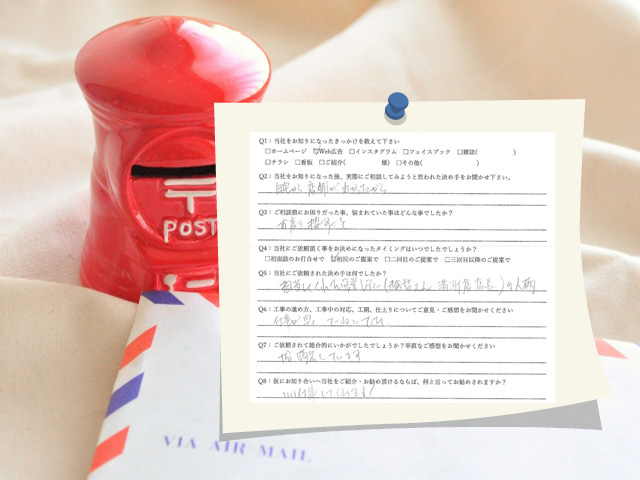 〒
POST
VIA AIR MAIL
Q1：当社をお知りになったきっかけを教えて下さい
□ホームページ ☑Web広告 □インスタグラム □フェイスブック □雑誌( )
□チラシ □看板 □ご紹介( 様) □その他( )
Q2：当社をお知りになった後、実際にご相談してみようと思われた決め手をお聞かせ下さい。
店舗がわかったから
Q3：ご相談前にお困りだった事、悩まれていた事はどんな事でしたか？
Q4：当社にご依頼頂く事をお決めになったタイミングはいつでしたでしょうか？
□初面談のお打合せで ☑初回のご提案で □二回目のご提案で □三回目以降のご提案で
Q5：当社にご依頼された決め手は何でしたか？
の人柄
Q6：工事の進め方、工事中の対応、工期、仕上りについてご意見・ご感想をお聞かせください
仕事が早い ていねいでした
Q7：ご依頼されて総合的にいかがでしたでしょうか？率直なご感想をお聞かせください
満足しています
Q8：仮にお知り合いへ当社をご紹介・お勧め頂けるならば、何と言ってお勧めされますか？
いい仕事してくれるよ！